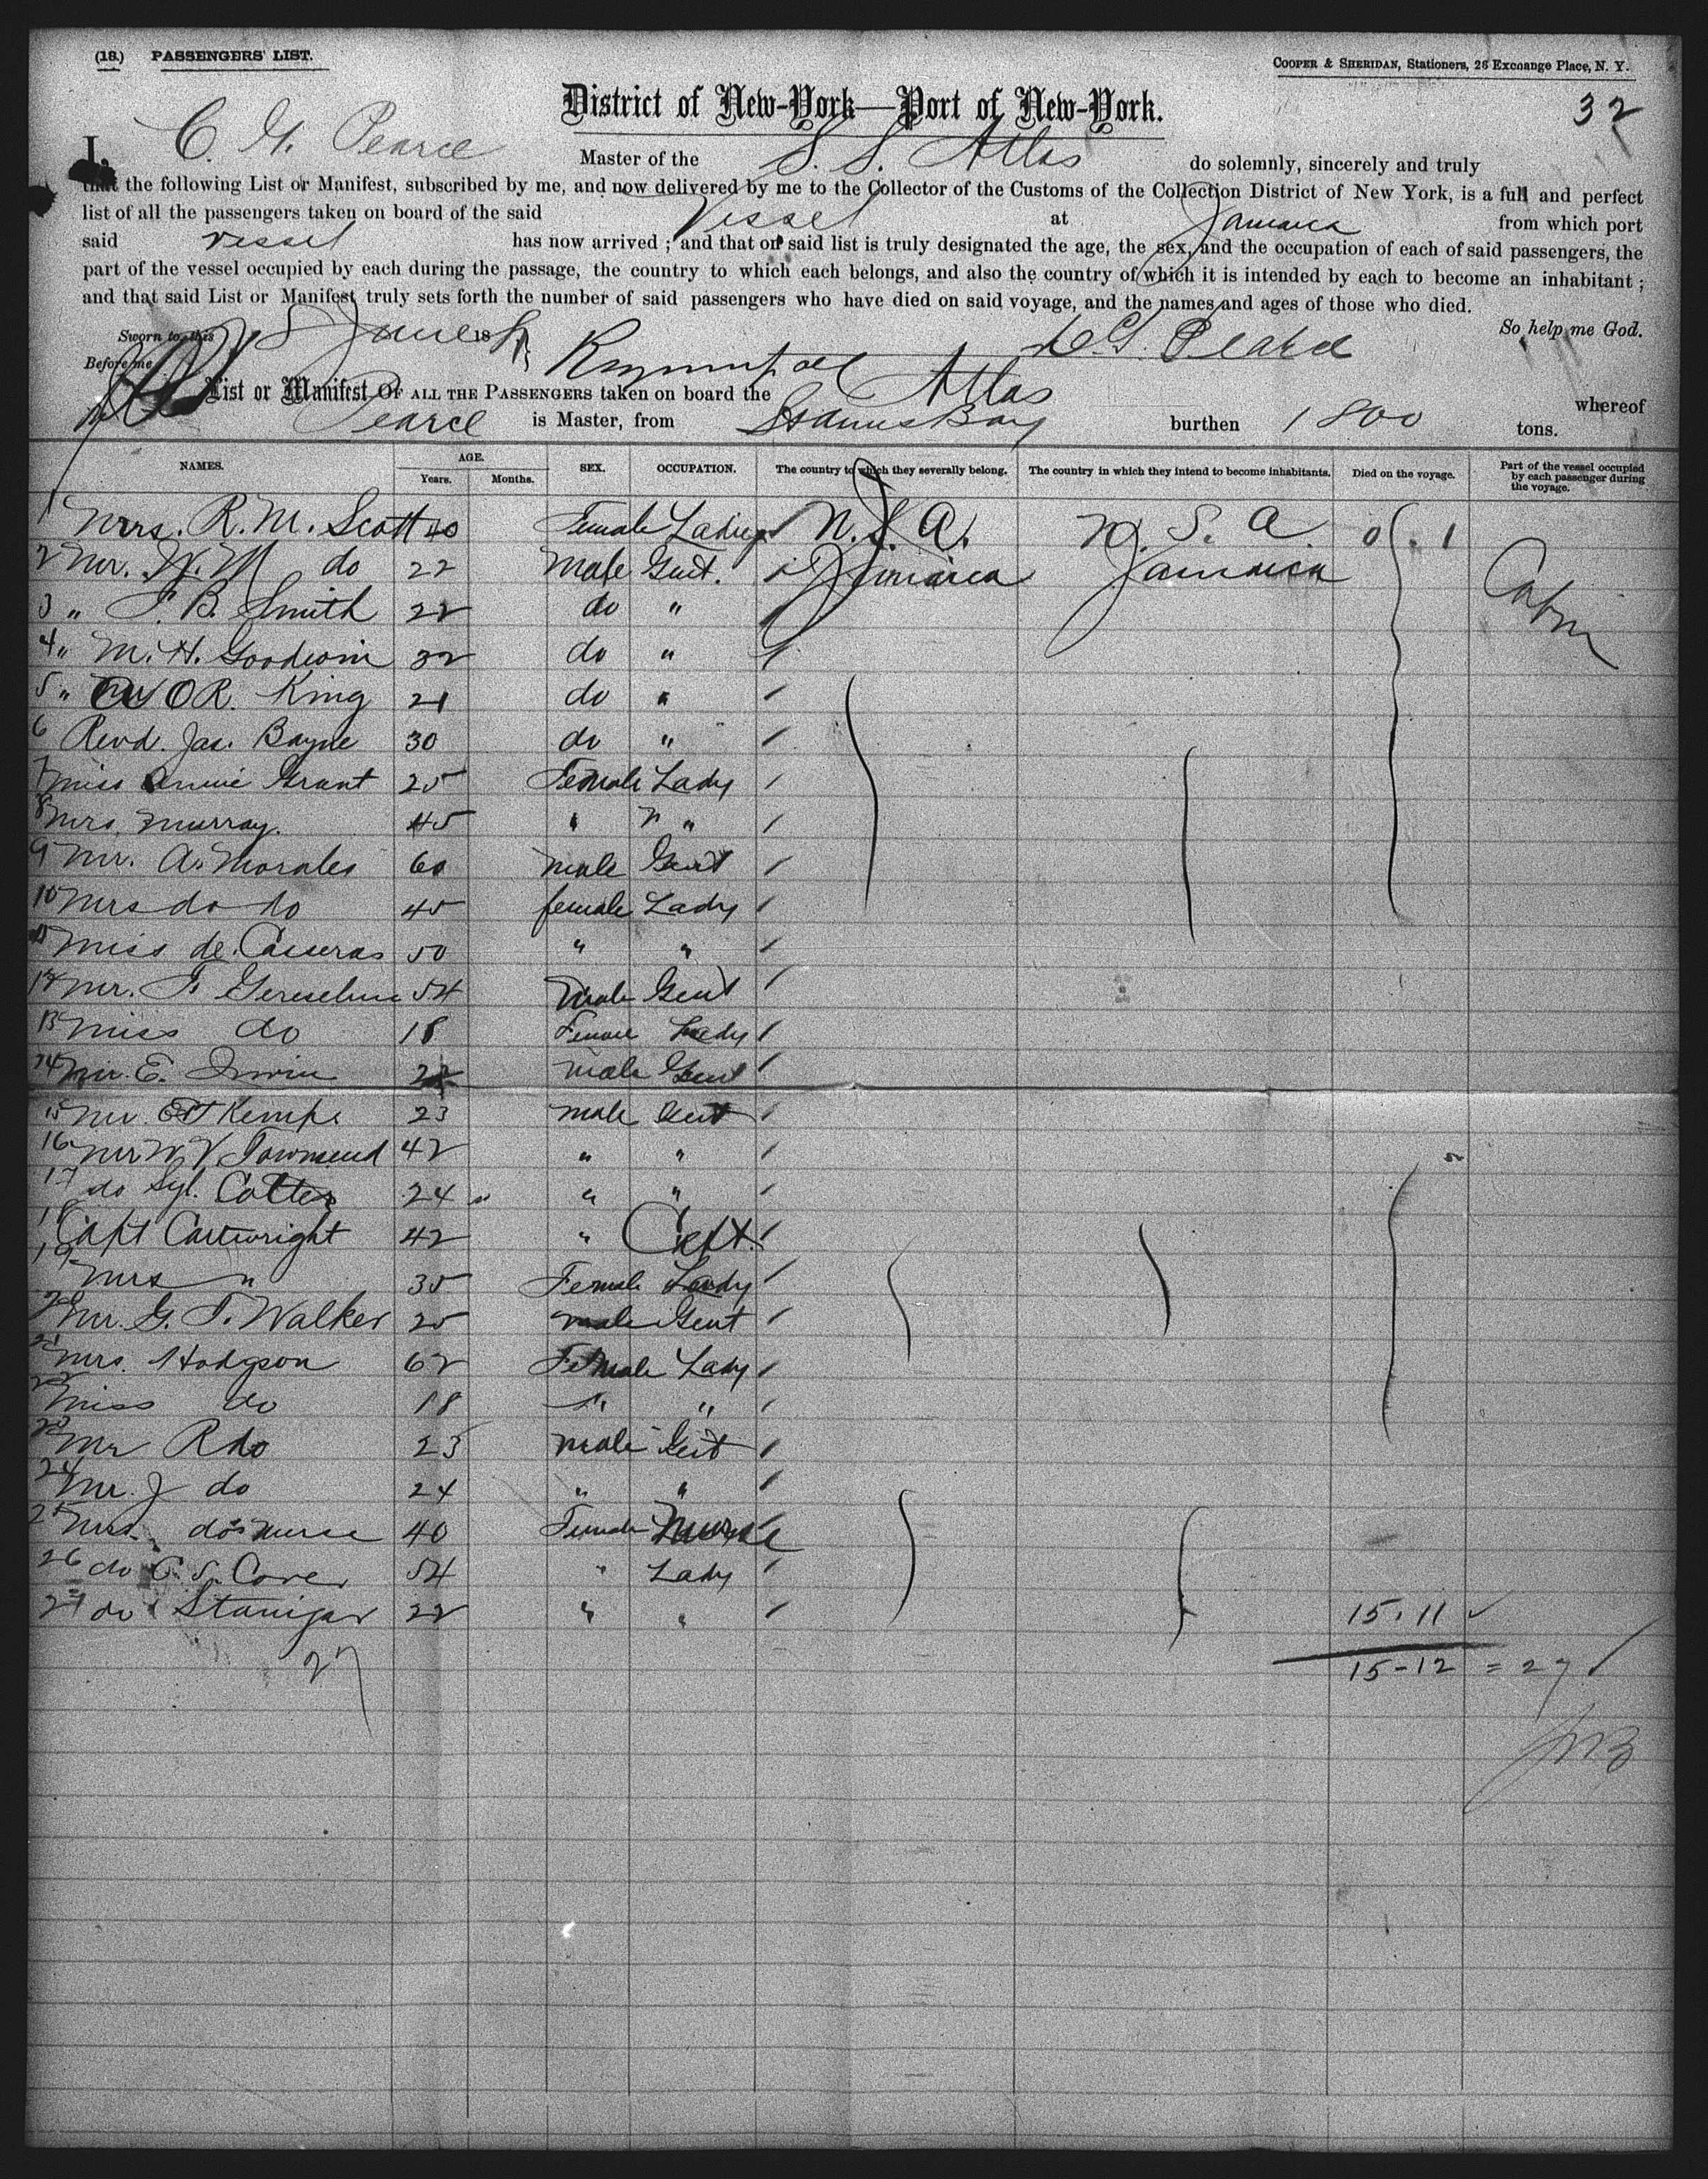 (18.) PASSENGERS' LIST.
COOPER & SHERIDAN, Stationers, 28 Exchange Place, N. Y.
District of New-York—Port of New-York.
32
I, C. G. Pearce Master of the S. S. Atlas do solemnly, sincerely and truly
that the following List or Manifest, subscribed by me, and now delivered by me to the Collector of the Customs of the Collection District of New York, is a full and perfect
list of all the passengers taken on board of the said Vessel at Jamaica from which port
said vessel has now arrived ; and that on said list is truly designated the age, the sex, and the occupation of each of said passengers, the
part of the vessel occupied by each during the passage, the country to which each belongs, and also the country of which it is intended by each to become an inhabitant ;
and that said List or Manifest truly sets forth the number of said passengers who have died on said voyage, and the names and ages of those who died.
Sworn to this 8 June 18
So help me God.
Before me
List or Manifest OF ALL THE PASSENGERS taken on board the Atlas whereof
Pearce is Master, from burthen 1800 tons.
NAMES. AGE. Years. Months. SEX. OCCUPATION. The country to which they severally belong. The country in which they intend to become inhabitants. Died on the voyage. Part of the vessel occupied by each passenger during the voyage.
1 Mrs. R. M. Scott 40 Female Lady U. S. A. U. S. A. 0 . 1
2 Mr. W. M do 22 Male Gent. Jamaica Jamaica Cabin
3 " F. B. Smith 22 do "
4 " M. H. Goodwin 32 do "
5 " O R. King 21 do "
6 Revd. Jas. Bayne 30 do "
7 Miss Annie Grant 25 Female Lady
8 Mrs. Murray. 45 " "
9 Mr. A. Morales 60 male Gent
10 Mrs do do 45 female Lady
11 Miss de Casseras 50 " "
12 Mr. F. 54 Male Gent
13 Miss do 18 Female Lady
14 Mr. E. Irwin male Gent
15 Mr. Kemps 23 male Gent
16 Mr W V Townsend 42 " "
17 do Syl. Cotter 24 " "
18 Capt Cartwright 42 " Capt.
19 Mrs " 35 Female Lady
20 Mr. G. T. Walker 25 male Gent
21 Mrs. Hodgson 62 Female Lady
22 Miss do 18 " "
23 Mr R do 23 male Gent
24 Mr. J do 24 " "
25 Mrs. do's nurse 40 Female Nurse
26 do C. S. Cover 54 " Lady
27 do Stanigar 22 " " 15. 11
27 15-12 = 27